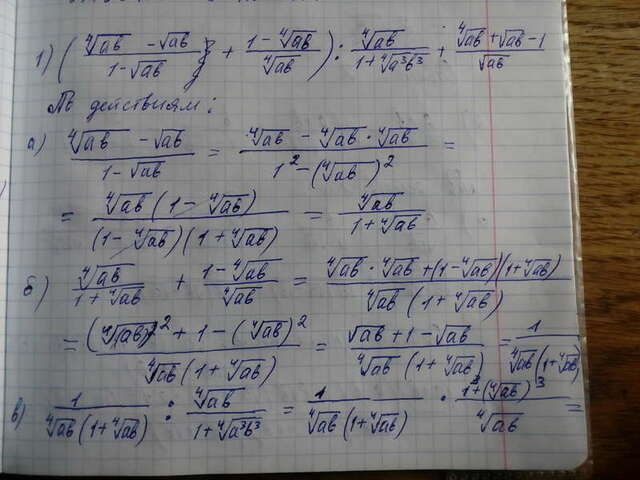 1) ( (⁴√ab − √ab)/(1 − √ab) + (1 − ⁴√ab)/⁴√ab ) : ⁴√ab/(1 + ⁴√a³b³) + (⁴√ab + √ab − 1)/√ab
По действиям:
а) (⁴√ab − √ab)/(1 − √ab) = (⁴√ab − ⁴√ab · ⁴√ab)/(1² − (⁴√ab)²) =
= ⁴√ab(1 − ⁴√ab)/((1 − ⁴√ab)(1 + ⁴√ab)) = ⁴√ab/(1 + ⁴√ab)
б) ⁴√ab/(1 + ⁴√ab) + (1 − ⁴√ab)/⁴√ab = (⁴√ab · ⁴√ab + (1 − ⁴√ab)(1 + ⁴√ab))/(⁴√ab(1 + ⁴√ab))
= ((⁴√ab)² + 1 − (⁴√ab)²)/(⁴√ab(1 + ⁴√ab)) = (√ab + 1 − √ab)/(⁴√ab(1 + ⁴√ab)) = 1/(⁴√ab(1 + ⁴√ab))
в) 1/(⁴√ab(1 + ⁴√ab)) : ⁴√ab/(1 + ⁴√a³b³) = 1/(⁴√ab(1 + ⁴√ab)) · (1³ + (⁴√ab)³)/⁴√ab =